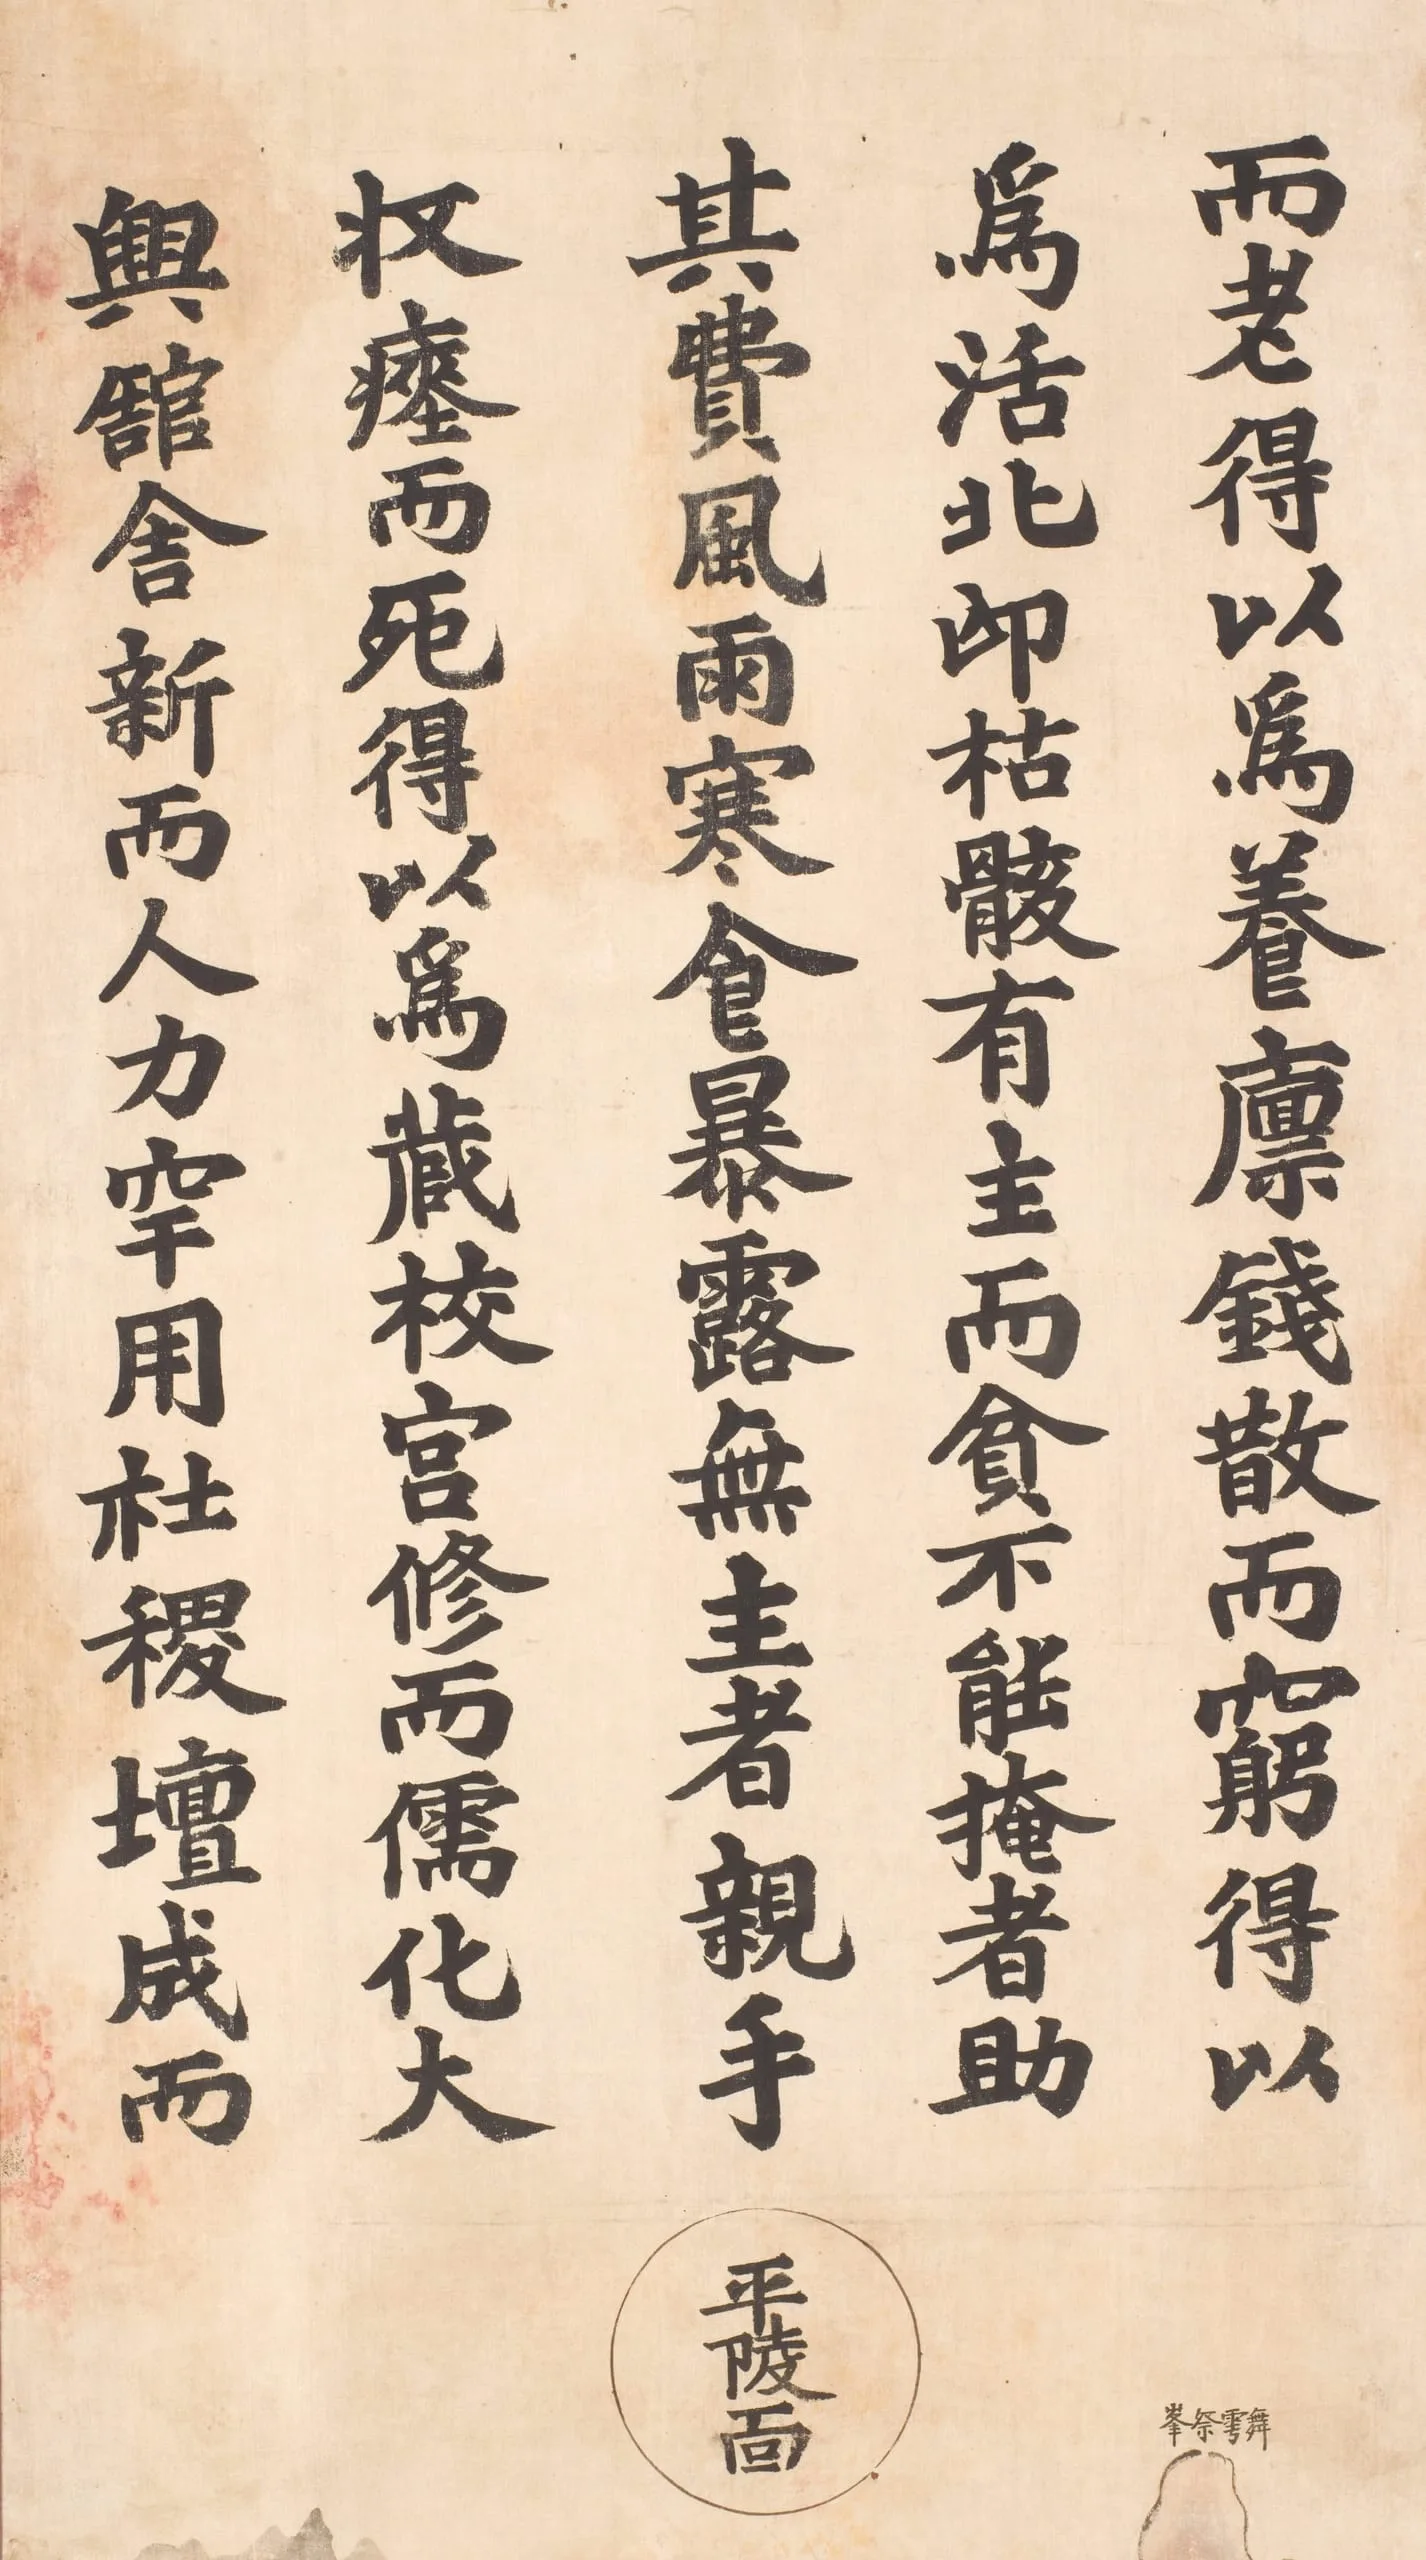 而老得以爲養廩錢散而窮得以
爲活北邙枯骸有主而貧不能掩者助
其費風雨寒食暴露無主者親手
収瘞而死得以爲蔵校宮修而儒化大
興舘舎新而人力罕用社稷壇成而
平陵面
舞雩祭峯